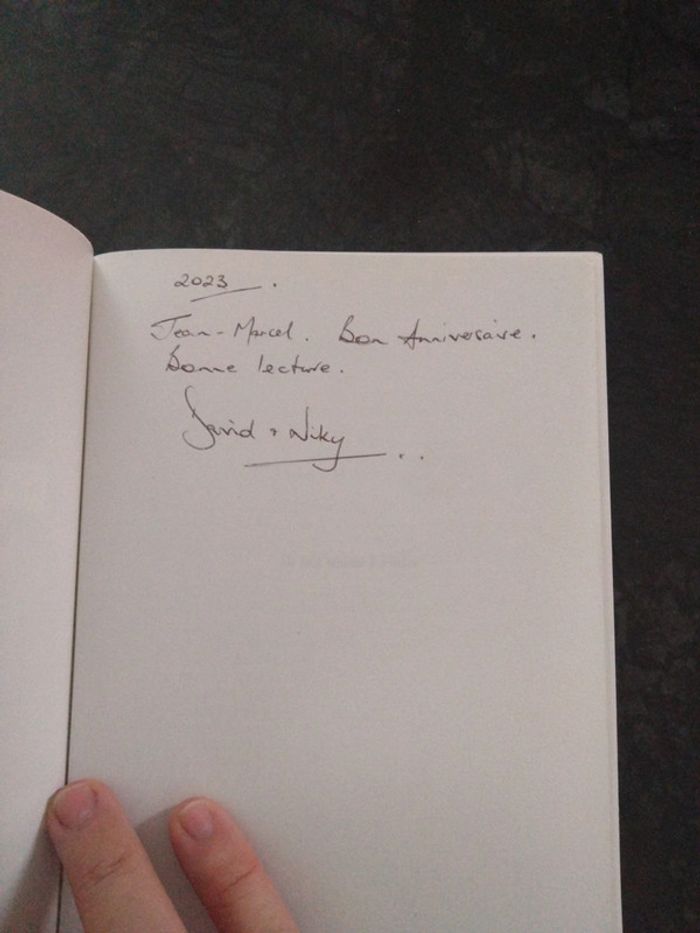 2023.
Jean-Marcel. Bon Anniversaire.
Bonne lecture.
David + Niky